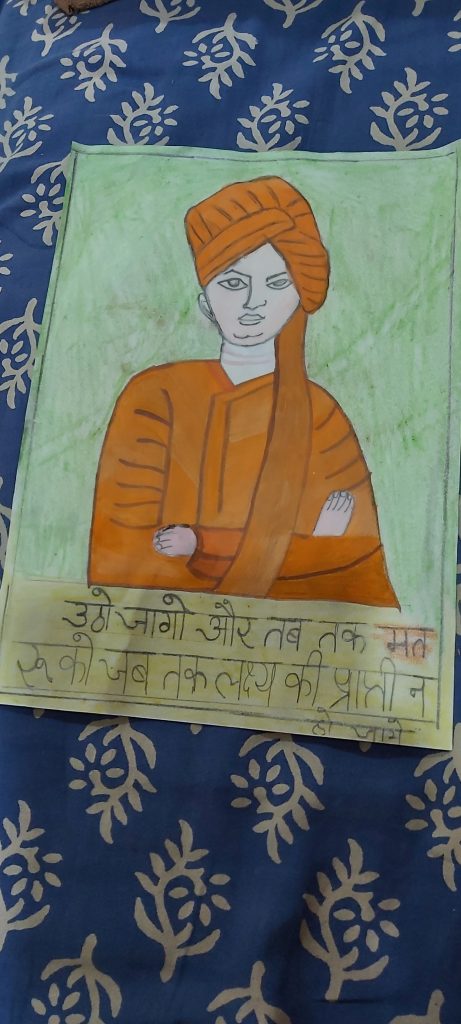 उठो जागो और तब तक मत
रूको जब तक लक्ष्य की प्राप्ती न
हो जाये